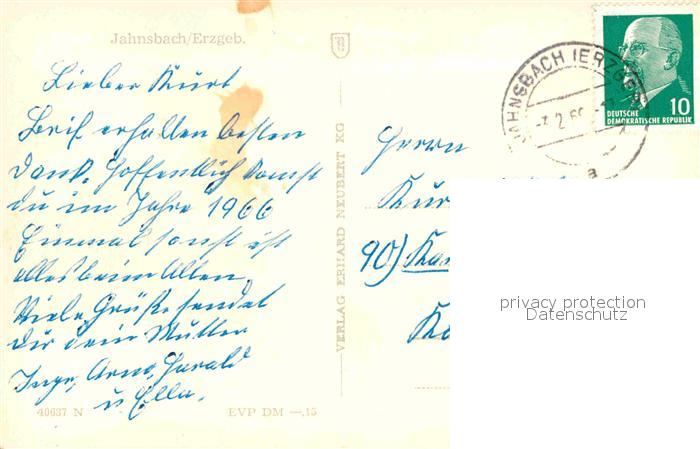 Jahnsbach/Erzgeb.
Lieber Kurt
Brif erhalten besten
Dank, hoffentlich komst
du im Jahre 1966
Einmal sonst ist
alles beim Alten.
Viele Grüße sendet
Dir dein Mutter
Inge, Arno, Harald
u. Ella.
40637 N
EVP DM —,15
VERLAG ERHARD NEUBERT KG
JAHNSBACH (ERZGEB
2.66
a
10
DEUTSCHE
DEMOKRATISCHE REPUBLIK
Herrn
Kur
90) Ka
K
privacy protection
Datenschutz